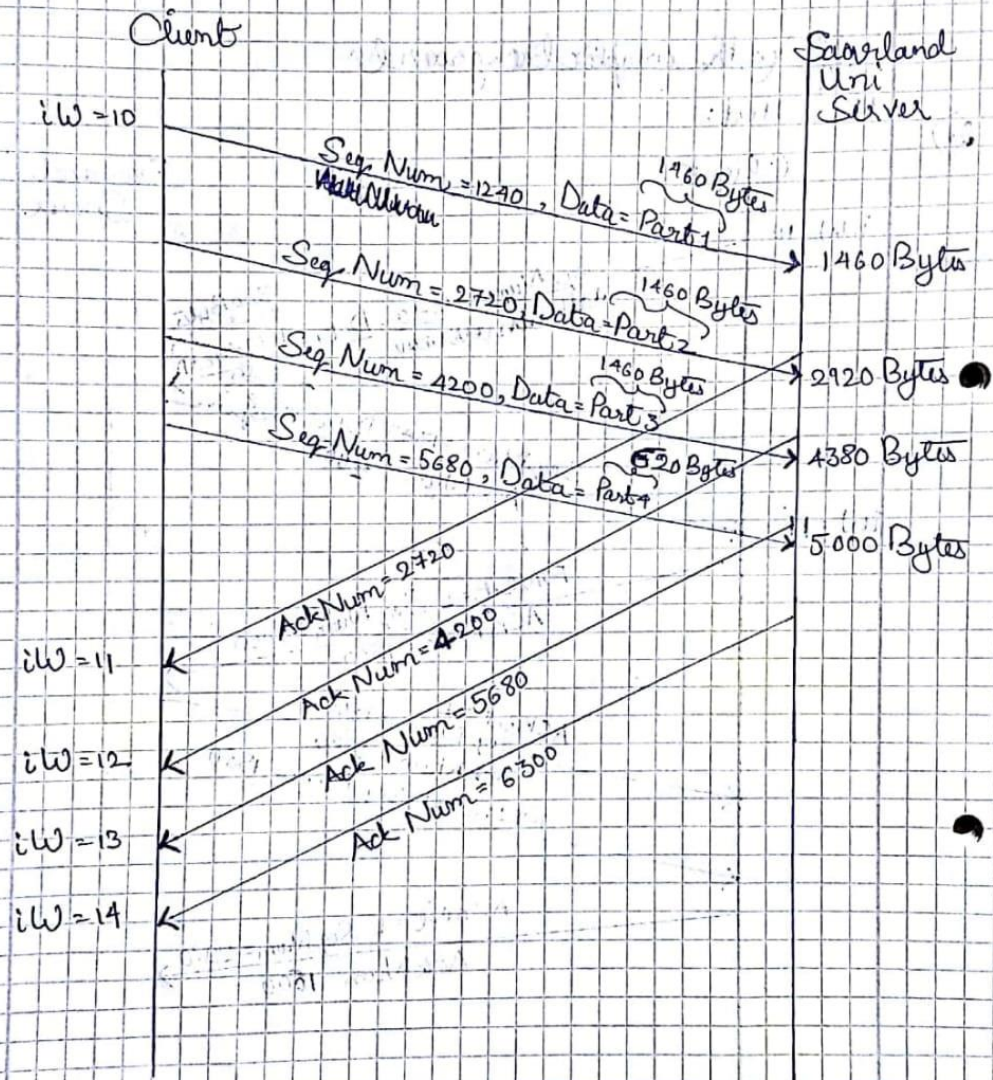 Client
Saarland
Uni
Server
iW=10
Seq Num = 1240, Data = Part 1
1460 Bytes
1460 Bytes
Seq Num = 2720, Data = Part 2
1460 Bytes
2920 Bytes
Seq Num = 4200, Data = Part 3
1460 Bytes
4380 Bytes
Seq Num = 5680, Data = Part 4
620 Bytes
5000 Bytes
Ack Num = 2720
iW=11
Ack Num = 4200
iW=12
Ack Num = 5680
iW=13
Ack Num = 6300
iW=14